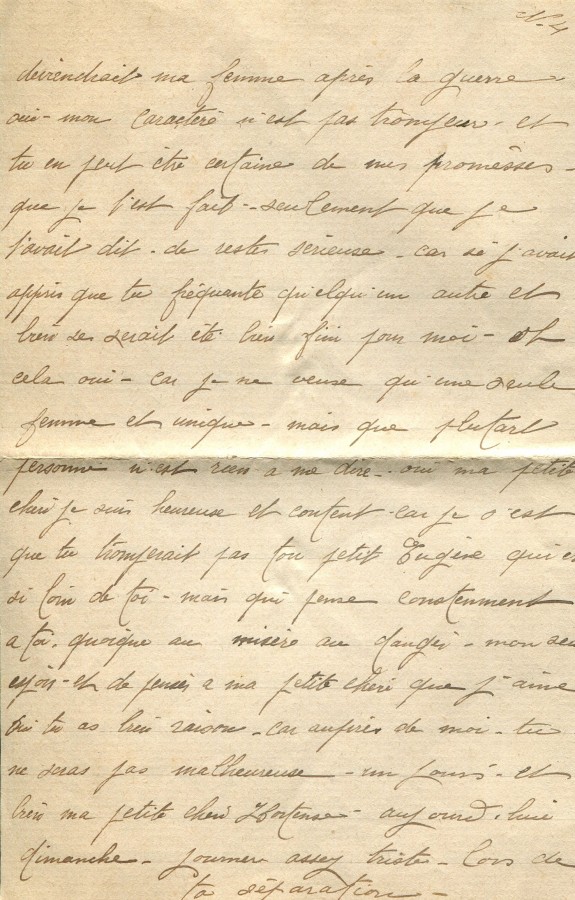 N-4
deviendrait ma femme après la guerre -
oui - mon caractère n'est pas trompeur - et
tu en peut être certaine de mes promèsses -
que je t'est fait - seulement que je
t'avait dit - de restes sérieuse - car sé j'avait
appris que tu fréquante quelqu'un autre et
bien se serait été bien fini pour moi - et
cela oui - car je ne veuse qu'une seule
femme et unique - mais que plutart
personne n'est rien a me dire - oui ma petite
chéri je suis heureuse et content - car je s'est
que tu tromperait pas ton petit Eugène qui es
si loin de toi - mais qui pense constenment
a toi. quoique au misère au danger - mon seu
espoir - et de penser a ma petite chéri que j'aime
oui tu as bien raison - car auprès de moi - tu
ne seras pas malheureuse - un jour - et
bien ma petite chéri Hortense - aujourd'hui
dimanche - journer assey triste - lors de
ta séparation -